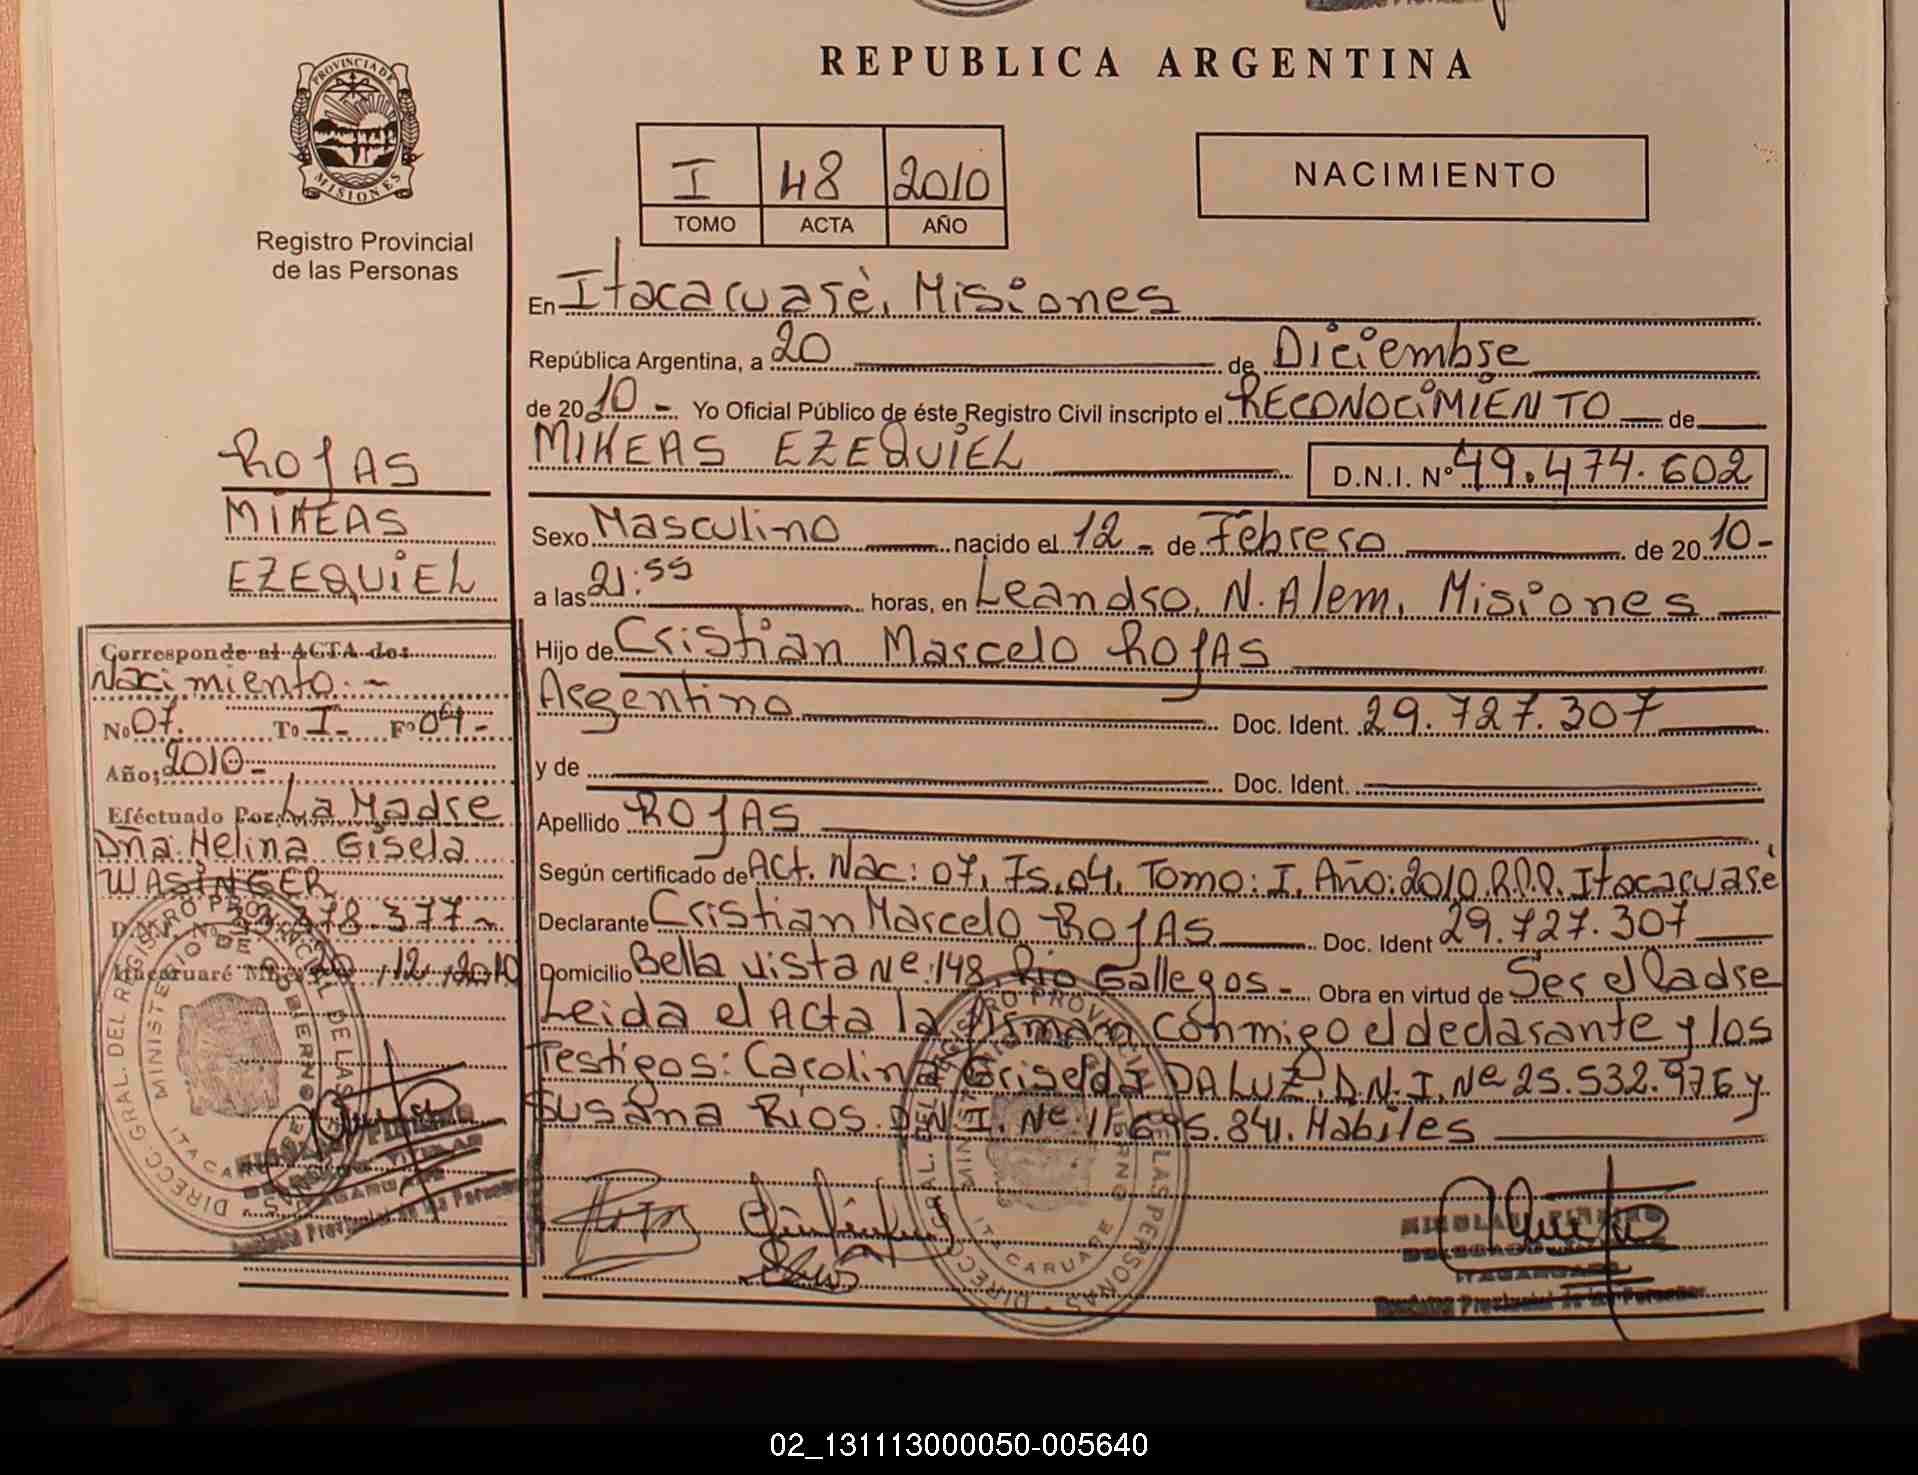 REPUBLICA ARGENTINA
PROVINCIA DE
MISIONES
Registro Provincial
de las Personas
I 48 2010
TOMO ACTA AÑO
NACIMIENTO
En Itacaruarè, Misiones
República Argentina, a 20 de Diciembre
de 2010 - Yo Oficial Público de éste Registro Civil inscripto el RECONOCIMIENTO de
MIKEAS EZEQUIEL D.N.I. Nº 49.474.602
Sexo Masculino nacido el 12 - de Febrero de 2010 -
a las 21:55 horas, en Leandro, N. Alem, Misiones
Hijo de Cristian Marcelo ROJAS
Argentino Doc. Ident. 29.727.307
y de Doc. Ident.
Apellido ROJAS
Según certificado de Act. Nac: 07, Fs.04, Tomo: I, Año:2010.R.P.P. Itacaruarè
Declarante Cristian Marcelo ROJAS Doc. Ident 29.727.307
Domicilio Bella Vista Nº:148, Rio Gallegos - Obra en virtud de Ser el Padre
Leida el Acta la firman conmigo el declarante y los
Testigos: Carolina Griselda DALUZ, D.N.I. Nº 25.532.976 y
Susana Rios. D.N.I. Nº 11.695.841. Habiles
ROJAS
MIKEAS
EZEQUIEL
Corresponde al ACTA de:
Nacimiento. -
Nº 07. Tº I - Fº 04 -
Año; 2010 -
Eféctuado Por: La Madre
Dña: Helina Gisela
WASINGER
D.N.I. Nº 378.377 -
Itacaruaré Mnes. 20,12,2010
DIRECC. GRAL. DEL REGISTRO PROVINCIAL DE LAS PERSONAS
MINISTERIO DE GOBIERNO
ITACARUARE
DIRECC. GRAL. DEL REGISTRO PROVINCIAL DE LAS PERSONAS
MINISTERIO DE GOBIERNO
ITACARUARE
ITACARUARE
Provincial de las Personas
02_131113000050-005640